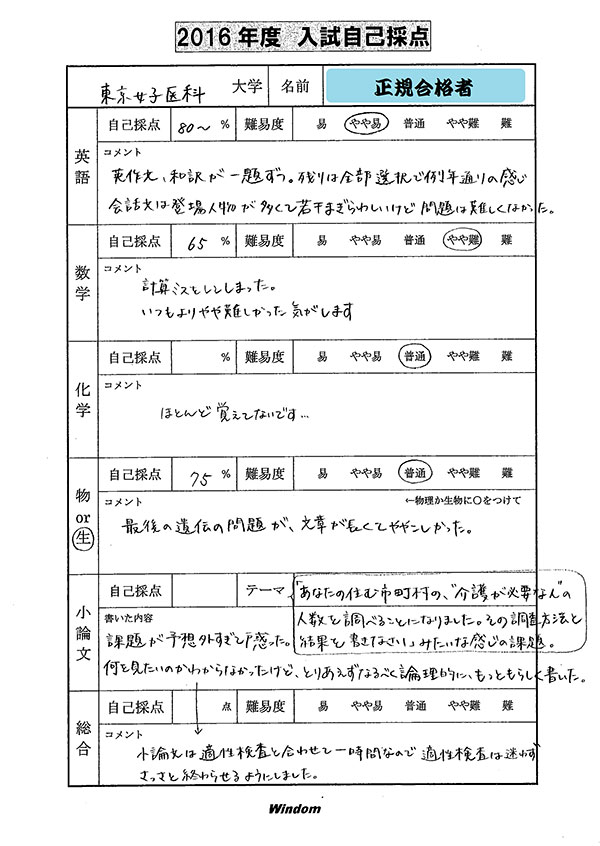 2016年度 入試自己採点
東京女子医科 大学 名前 正規合格者
英語
自己採点 80～ % 難易度 易 やや易 普通 やや難 難
コメント
英作文、和訳が一題ずつ。残りは全部選択で例年通りの感じ
会話文は登場人物が多くて若干まぎらわしいけど問題は難しくなかった。
数学
自己採点 65 % 難易度 易 やや易 普通 やや難 難
コメント
計算ミスとしてしまった。
いつもよりやや難しかった気がします
化学
自己採点 % 難易度 易 やや易 普通 やや難 難
コメント
ほとんど覚えてないです…
物or生
自己採点 75 % 難易度 易 やや易 普通 やや難 難
コメント ←物理か生物に○をつけて
最後の遺伝の問題が、文章が長くてややこしかった。
小論文
自己採点 テーマ 「あなたの住む市町村の、"介護が必要な人"の
人数を調べることになりました。その調査方法と
結果を書きなさい」みたいな感じの課題。
書いた内容
課題が予想外すぎて戸惑った。
何を見たいのかわからなかったけど、とりあえずなるべく論理的に、もっともらしく書いた。
総合
自己採点 点 難易度 易 やや易 普通 やや難 難
コメント
小論文は適性検査と合わせて一時間なので適性検査は迷わず
さっさと終わらせるようにしました。
Windom